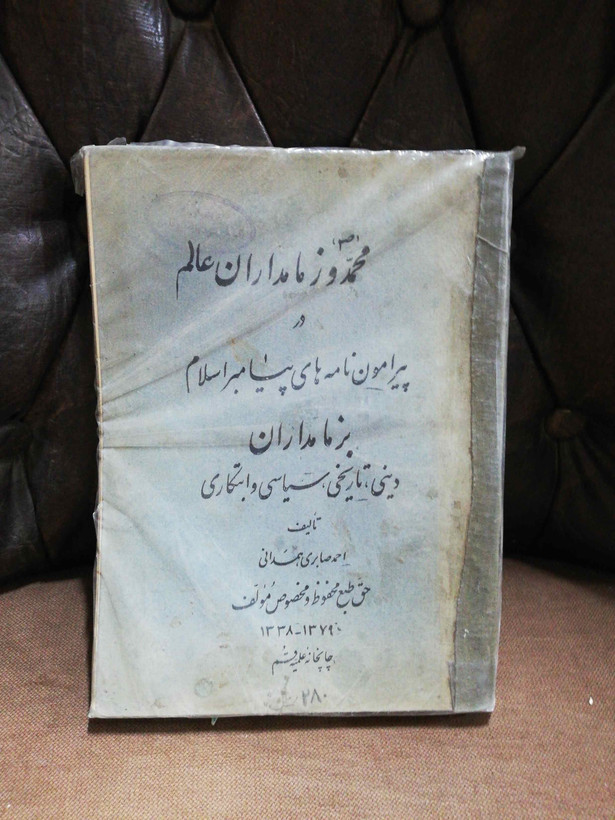 محمد (ص) و زمامداران عالم
در
پیرامون نامه های پیامبر اسلام
بزمامداران
دینی، تاریخی، سیاسی و ابتکاری
تألیف
احمد صابری همدانی
حق طبع محفوظ و مخصوص مؤلف
۱۳۳۸-۱۳۷۹
چاپخانه علمیه قم
۲۸۰